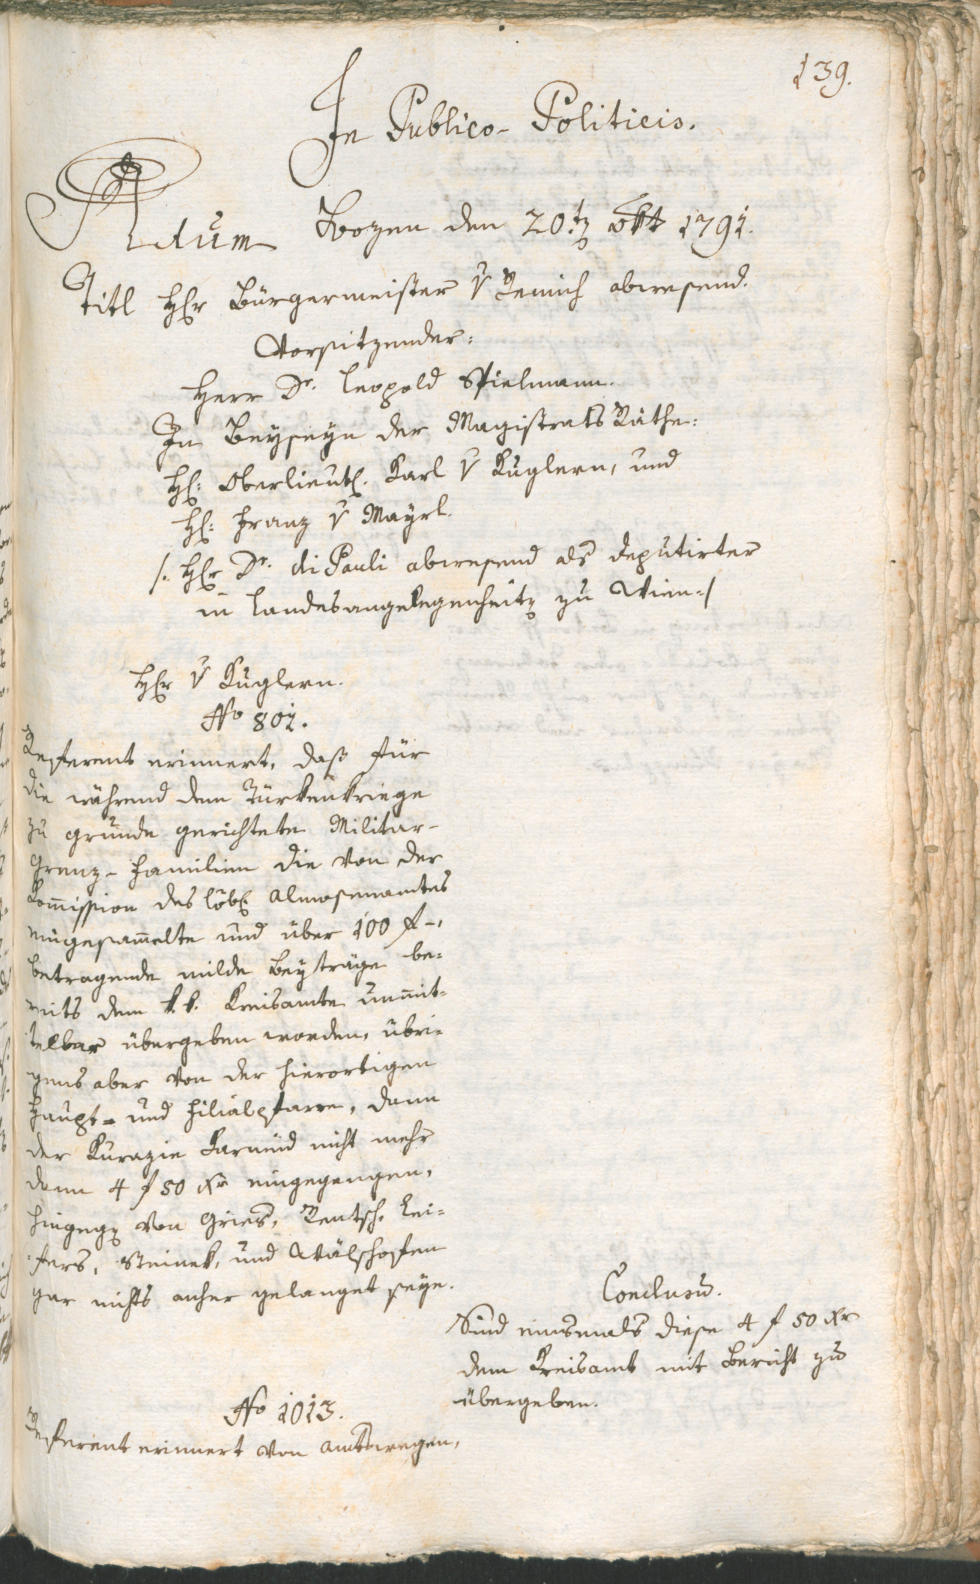 139.
In Publico-Politicis.
Actum Bozen den 20ten 8bris 1791.
Titl Herr Bürgermeister v abwesend.
Vorsitzender:
Herr Dr. Leopold Stielmann.
In Beyseyn der Magistrats Räthe:
H: Oberlieut. Karl v Kuglern, und
H: Franz v Mayrl.
/: Herr Dr. di Pauli abwesend als deputirter
in Landesangelegenheiten zu Wien :/
Herr v Kuglern.
No 801.
Referent erinnert, daß für
die während dem Türkenkriege
zu grunde gerichtete Militar-
Grenz-Familien die von der
Kom̄ission des löbl. Almosenamtes
eingesam̄elte und über 100 f -,
betragende milde Beyträge be-
reits dem k. k. Kreisamte unmit-
telbar übergeben worden, übri-
gens aber von der hierortigen
Haupt- und Filialpfarre, dann
der Kurazie Karneid nicht mehr
denn 4 f 50 xr eingegangen,
hingegen von Gries, Rentsch, Lei-
fers, Steinek, und Wälschofen
gar nichts anher gelanget seye.
Conclusu.
Sind einsmals diese 4 f 50 xr
dem Kreisamt mit Bericht zu
übergeben.
No 1013.
Referent erinnert von amtswegen,